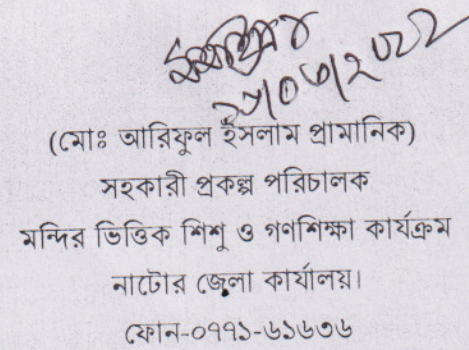 (মোঃ আরিফুল ইসলাম প্রামানিক)
সহকারী প্রকল্প পরিচালক
মন্দির ভিত্তিক শিশু ও গণশিক্ষা কার্যক্রম
নাটোর জেলা কার্যালয়।
ফোন-০৭৭১-৬১৬৩৬